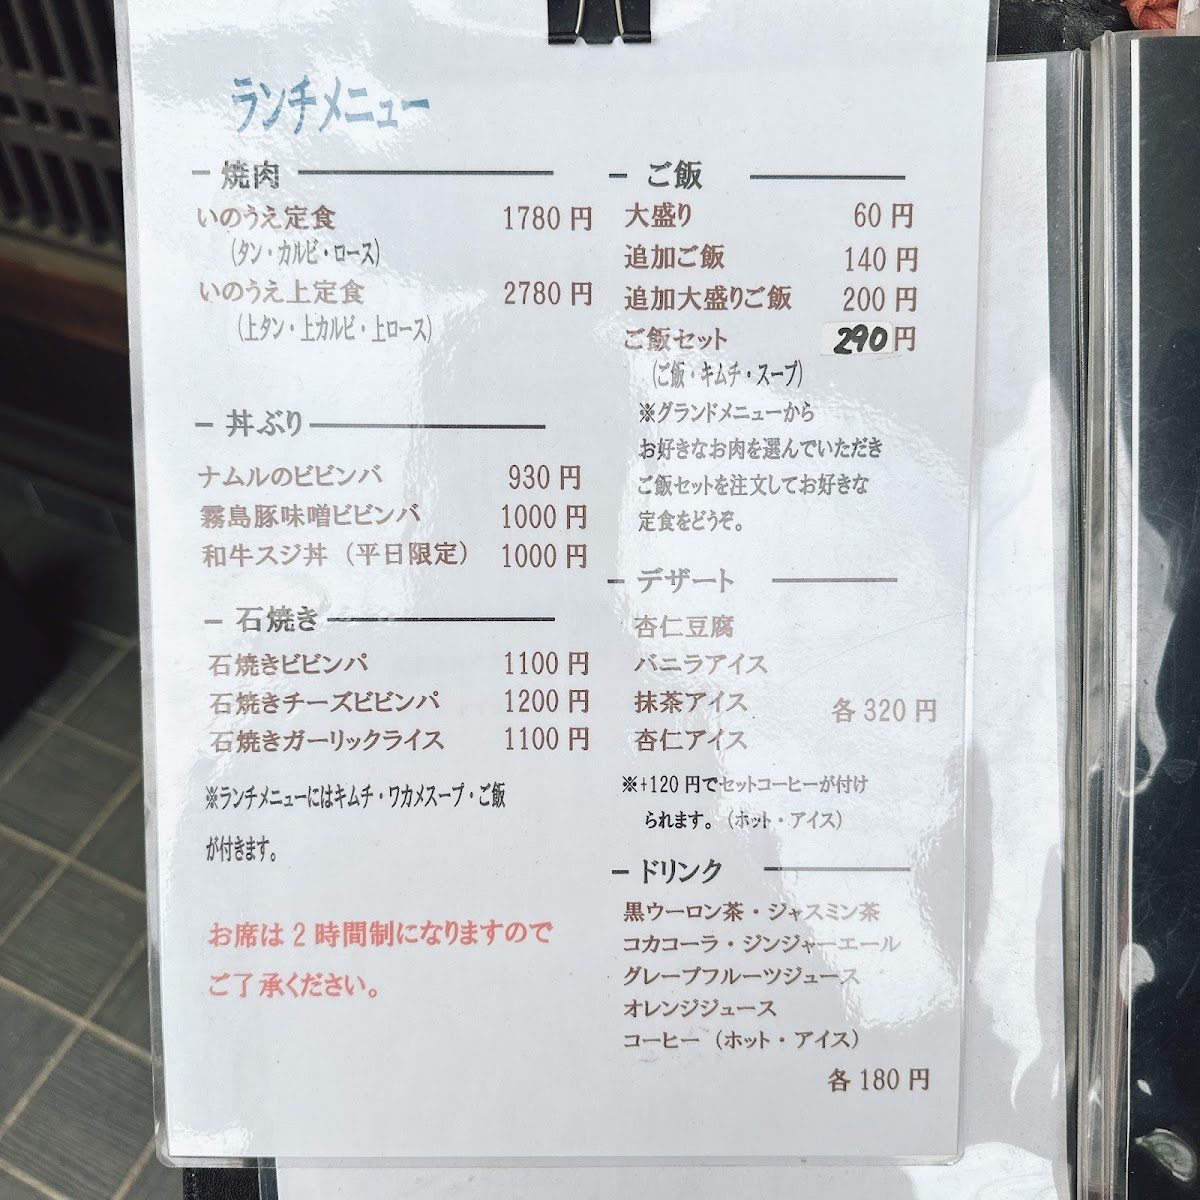 ランチメニュー
焼肉
いのうえ定食 1780円
(タン・カルビ・ロース)
いのうえ上定食 2780円
(上タン・上カルビ・上ロース)
丼ぶり
ナムルのビビンバ 930円
霧島豚味噌ビビンバ 1000円
和牛スジ丼（平日限定） 1000円
石焼き
石焼きビビンパ 1100円
石焼きチーズビビンパ 1200円
石焼きガーリックライス 1100円
※ランチメニューにはキムチ・ワカメスープ・ご飯
が付きます。
お席は2時間制になりますので
ご了承ください。
ご飯
大盛り 60円
追加ご飯 140円
追加大盛りご飯 200円
ご飯セット 290円
(ご飯・キムチ・スープ)
※グランドメニューから
お好きなお肉を選んでいただき
ご飯セットを注文してお好きな
定食をどうぞ。
デザート
杏仁豆腐
バニラアイス
抹茶アイス
各320円
杏仁アイス
※+120円でセットコーヒーが付け
られます。（ホット・アイス）
ドリンク
黒ウーロン茶・ジャスミン茶
コカコーラ・ジンジャーエール
グレープフルーツジュース
オレンジジュース
コーヒー（ホット・アイス）
各180円